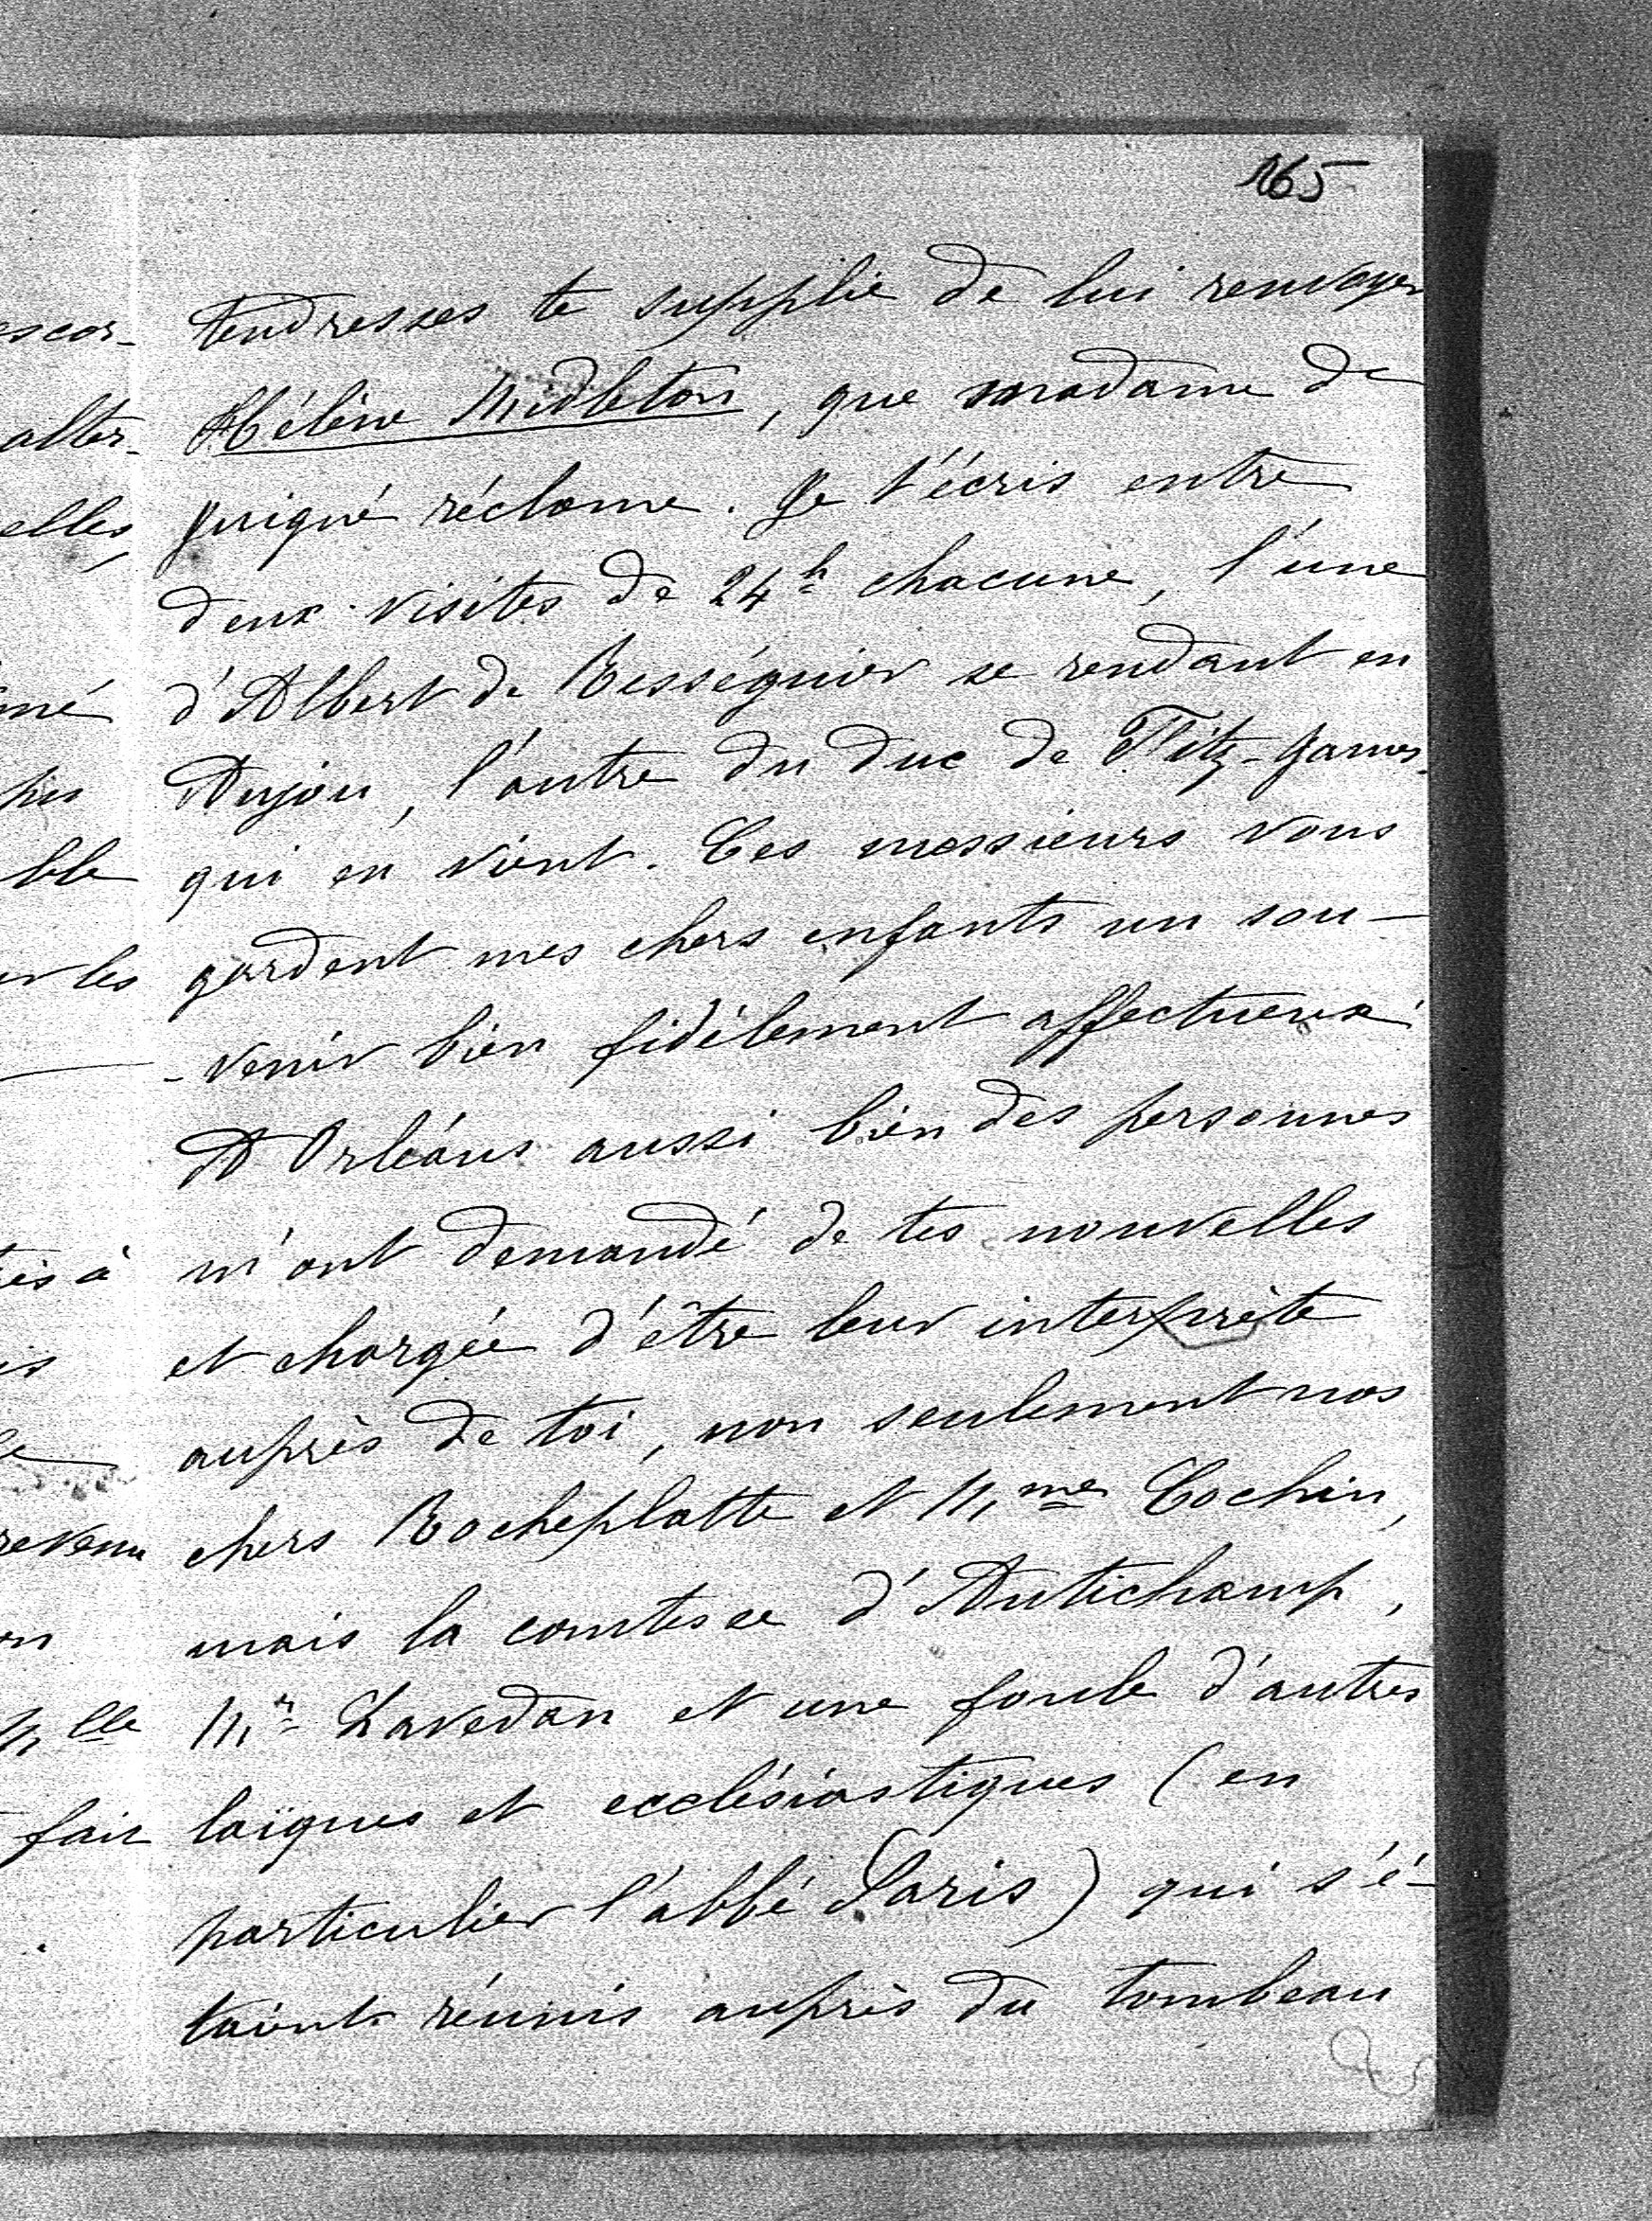 165
tendresses te supplie de lui renvoyer
Hélène Midleton, que madame de
Juigné réclame. Je t'écris entre
deux visites de 24h chacune, l'une
d'Albert de Rességuier se rendant en
Anjou, l'autre du duc de Fitz-James
qui en vient. Ces messieurs vous
gardent mes chers enfants un sou-
-venir bien fidèlement affectueux
A Orléans aussi bien des personnes
m'ont demandé de tes nouvelles
et chargée d'être leur interprète
auprès de toi, non seulement nos
chers Rocheplatte et Mmes Cochin,
mais la comtesse d'Autichamp,
Mr Lavedan et une foule d'autres
laïques et ecclésiastiques (en
particulier l'abbé Paris) qui s'é-
taient réunis auprès du tombeau
escor-
alter-
elles,
mé
ble
er les
tés à
is
le
revenu
on
Mlle
fair